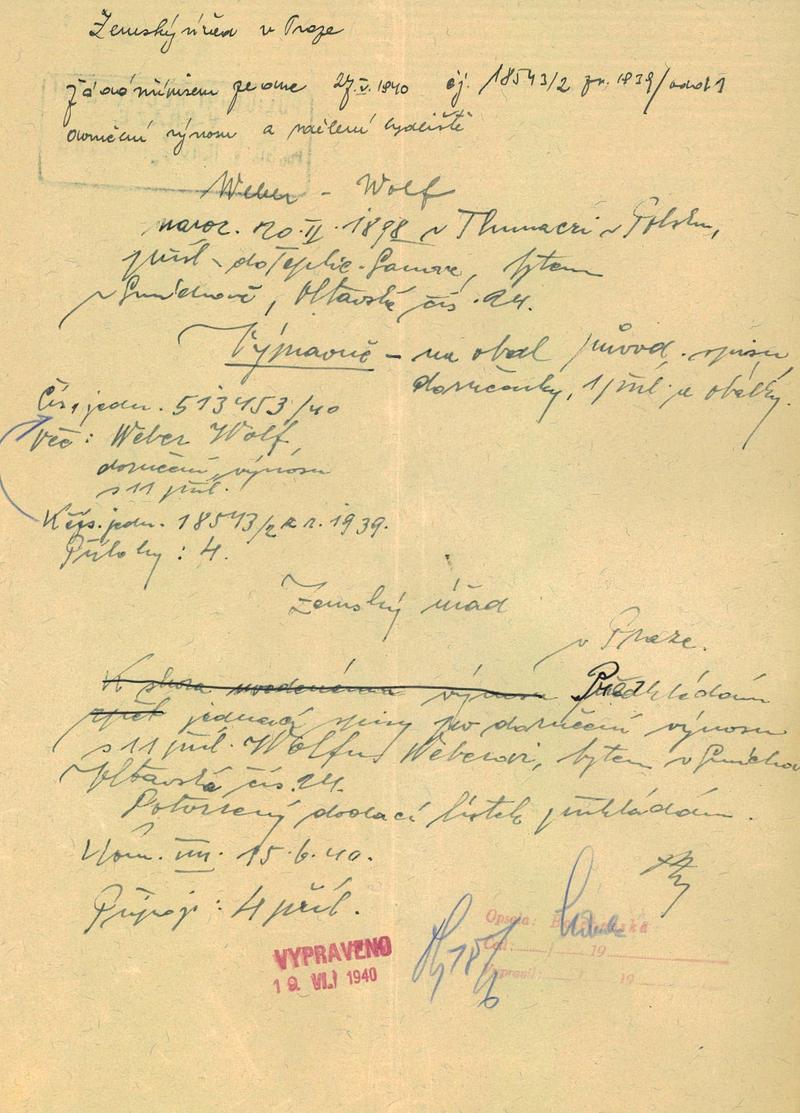 Zemský úřad v Praze
žádá přípisem ze dne 27.V.1940 čj. 18543/2 zr. 1939/
doručení výnosu a sdělení bydliště
Weber - Wolf
naroz. 20.II.1898 v Tlumaczi v Polsku,
přísl. do Teplic-Šanova, bytem
v Smíchově, Vltavská čís. 24.
Výpravně - na obal původ. spisu,
doručenky, 1 příl. a obálky.
Čís. jedn. 513453/40
Věc: Weber Wolf
doručení výnosu
s 11 příl.
K čís. jedn. 18543/2 z r. 1939.
Přílohy: 4.
Zemský úřad
v Praze.
K shora uvedenému výnosu Předkládám
zpět jednací spisy po doručení výnosu
s 11 příl. Wolfu Weberovi, bytem v Smíchově
Vltavská čís. 24.
Potvrzený dodací lístek přikládám.
15.6.40.
Připoj: 4 příl.
Opsala:
Čtl: 19
Vypravil: 19
VYPRAVENO
19. VI. 1940